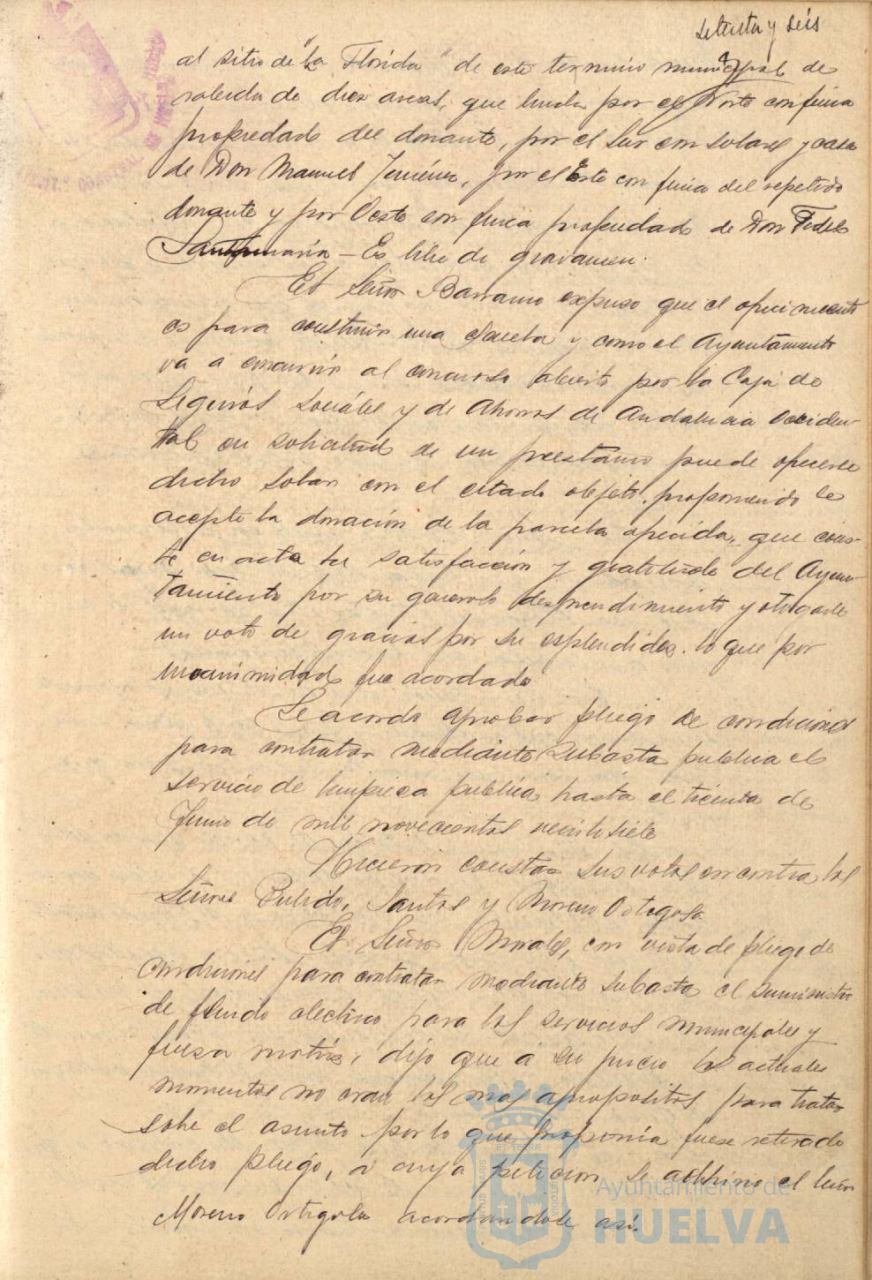 setenta y seis
al sitio de "la Florida" de este termino municipal de
cabida de diez areas, que linda por el Norte con finca
propiedad del donante, por el Sur con solares y casa
de Don Manuel Jiménez, por el Este con finca del repetido
donante y por Oeste con finca propiedad de Don Fidel
Santamaría - Es libre de gravamen.
El Señor Barranco expuso que el ofrecimiento
es para construir una Escuela y como el Ayuntamiento
va a concurrir al concurso abierto por la Caja de
Seguros Sociales y de Ahorros de Andalucia Occiden-
tal en solicitud de un prestamo puede ofrecerse
dicho solar con el citado objeto, proponiendo se
acepte la donación de la parcela ofrecida, que cons-
te en acta la satisfacción y gratitud del Ayun-
tamiento por su generoso desprendimiento y otorgarle
un voto de gracias por su esplendidez. lo que por
unanimidad fue acordado
Se acordo aprobar pliego de condiciones
para contratar mediante subasta publica el
servicio de limpieza publica hasta el treinta de
Junio de mil novecientos veintisiete
Hicieron constar sus votos en contra los
Señores Pulido, Santos y Moreno Ortegosa
El Señor Morales, con vista de pliego de
condiciones para contratar mediante subasta el suministro
de fluido electrico para los servicios municipales y
fuerza motriz, dijo que á su juicio los actuales
momentos no eran los mas apropositos para tratar
sobre el asunto por lo que proponia fuese retirado
dicho pliego, a cuya peticion se adhirio el Señor
Moreno Ortigola acordandole asi.
Ayuntamiento de
HUELVA